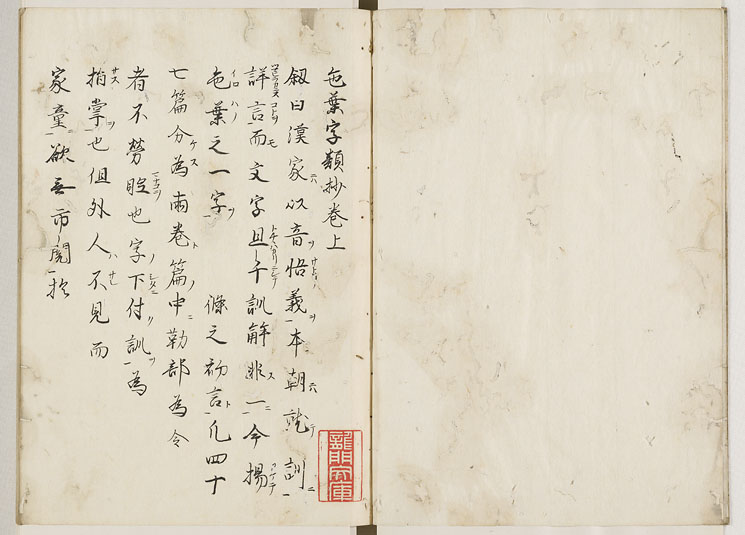 色葉字類抄巻上
叙曰漢家以音悟義本朝就訓
詳言而文字且千訓解非一今揚
色葉之一字 條之初言凡四十
七篇分為兩巻篇中勒部為令
者不勞眼也字下付訓為
指掌也但外人不見而
家童欲無市閲於
龍門文庫